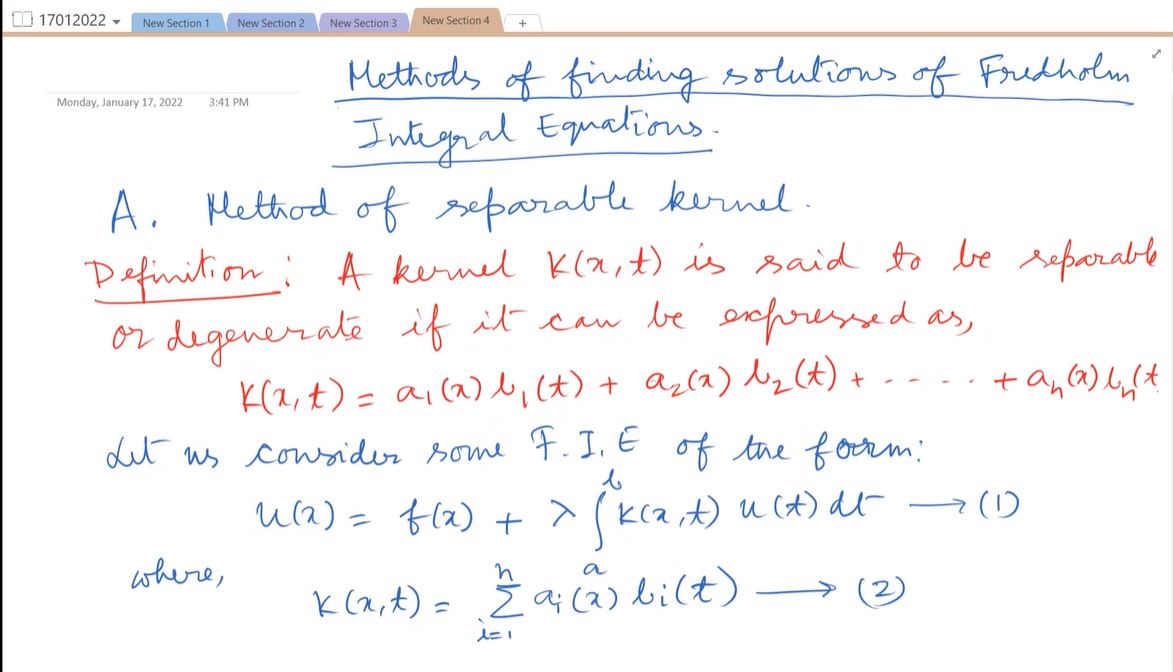 17012022
New Section 1 New Section 2 New Section 3 New Section 4 +
Methods of finding solutions of Fredholm
Monday, January 17, 2022 3:41 PM
Integral Equations.
A. Method of separable kernel.
Definition: A kernel K(x,t) is said to be separable
or degenerate if it can be expressed as,
K(x,t) = a₁(x) b₁(t) + a₂(x) b₂(t) + ----- + aₙ(x) bₙ(t
Let us consider some F.I.E of the form:
u(x) = f(x) + λ ∫ₐᵇ K(x,t) u(t) dt → (1)
where,
K(x,t) = Σᵢ₌₁ⁿ aᵢ(x) bᵢ(t) → (2)